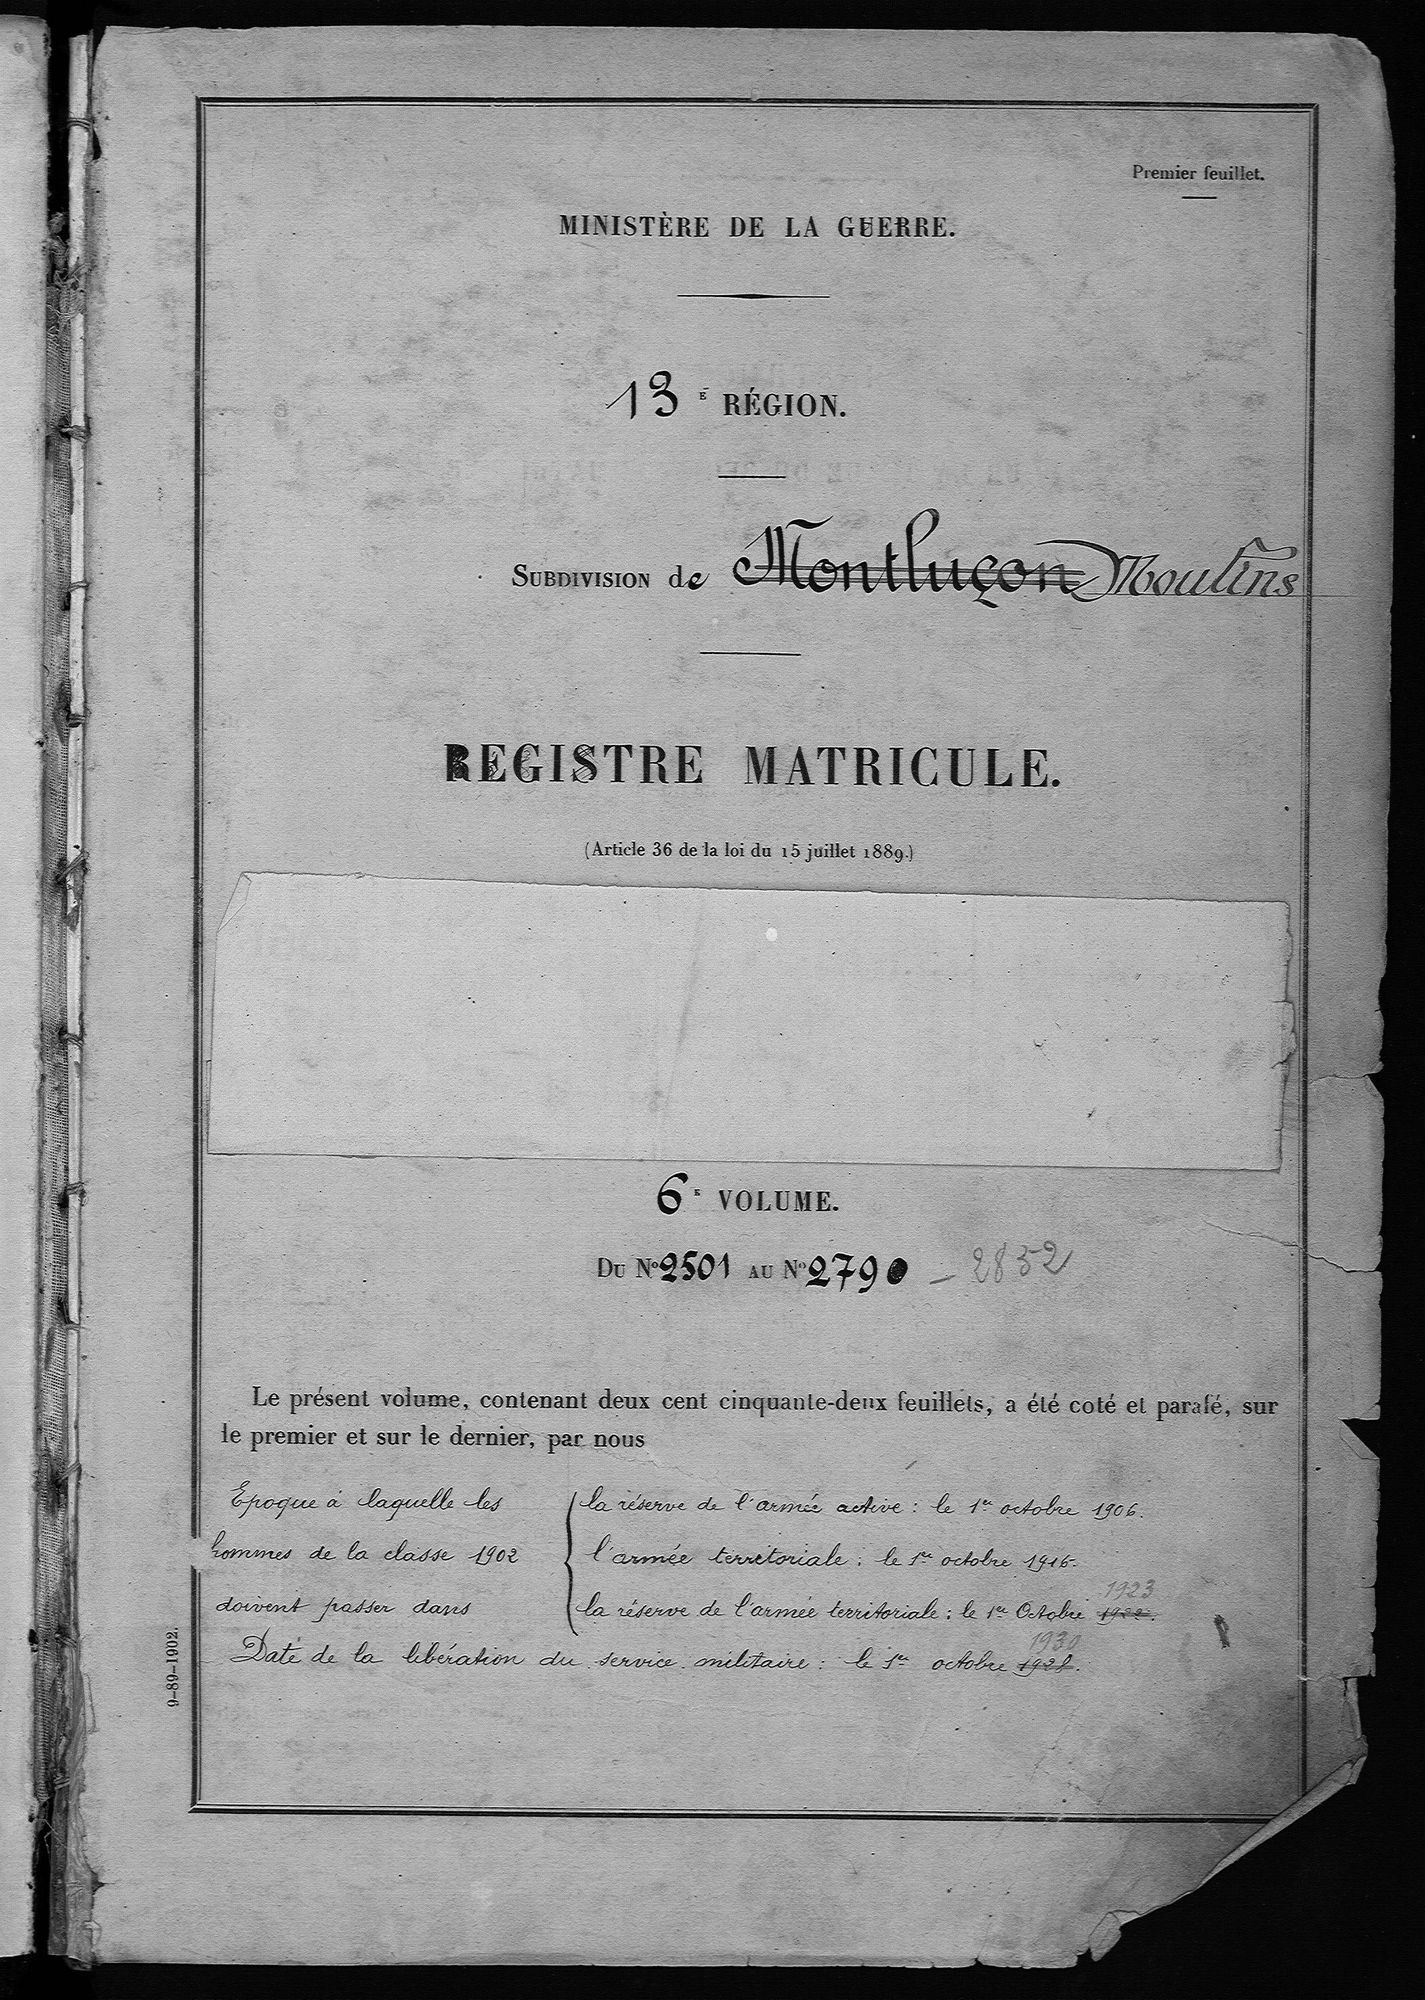 Premier feuillet.
MINISTÈRE DE LA GUERRE.
13E RÉGION.
SUBDIVISION de Montluçon Moulins
REGISTRE MATRICULE.
(Article 36 de la loi du 15 juillet 1889.)
6E VOLUME.
DU No 2501 AU No 2790 – 2852
Le présent volume, contenant deux cent cinquante-deux feuillets, a été coté et parafé, sur
le premier et sur le dernier, par nous
Epoque à laquelle les
hommes de la classe 1902
doivent passer dans
la réserve de l'armée active : le 1er octobre 1906.
l'armée territoriale : le 1er octobre 1916.
1923
la réserve de l'armée territoriale : le 1er Octobre 1922.
1930
Date de la libération du service militaire : le 1er octobre 1928.
9-89-1902.